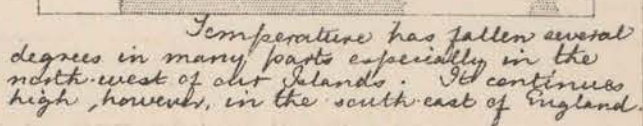 Temperature has fallen several
degrees in many parts especially in the
north-west of our Islands. It continues
high, however, in the south-east of England.